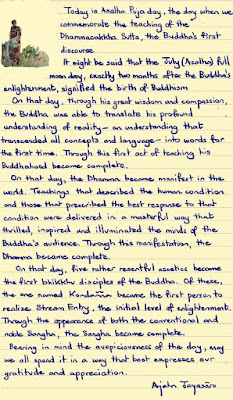 Today is Asalha Puja day, the day when we
commemorate the teaching of the
Dhammacakkha Sutta, the Buddha's first
discourse
It might be said that the July (Asalha) full
moon day, exactly two months after the Buddha's
enlightenment, signified the birth of Buddhism
On that day, through his great wisdom and compassion,
the Buddha was able to translate his profound
understanding of reality – an understanding that
transcended all concepts and language – into words for
the first time. Through this first act of teaching his
Buddhahood became complete.
On that day, the Dhamma became manifest in the
world. Teachings that described the human condition
and those that prescribed the best response to that
condition were delivered in a masterful way that
thrilled, inspired and illuminated the minds of the
Buddha's audience. Through this manifestation, the
Dhamma became complete.
On that day, five rather resentful ascetics became
the first bhikkhu disciples of the Buddha. Of these,
the one named Kondañña became the first person to
realize Stream Entry, the initial level of enlightenment.
Through the appearance of both the conventional and
noble Sangha, the Sangha became complete.
Bearing in mind the auspiciousness of the day, may
we all spend it in a way that best expresses our
gratitude and appreciation.
Ajahn Jayasāro